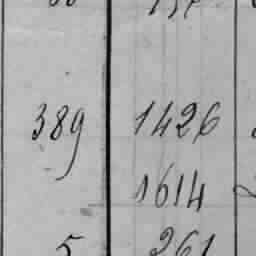 389 1426
1614
5 261